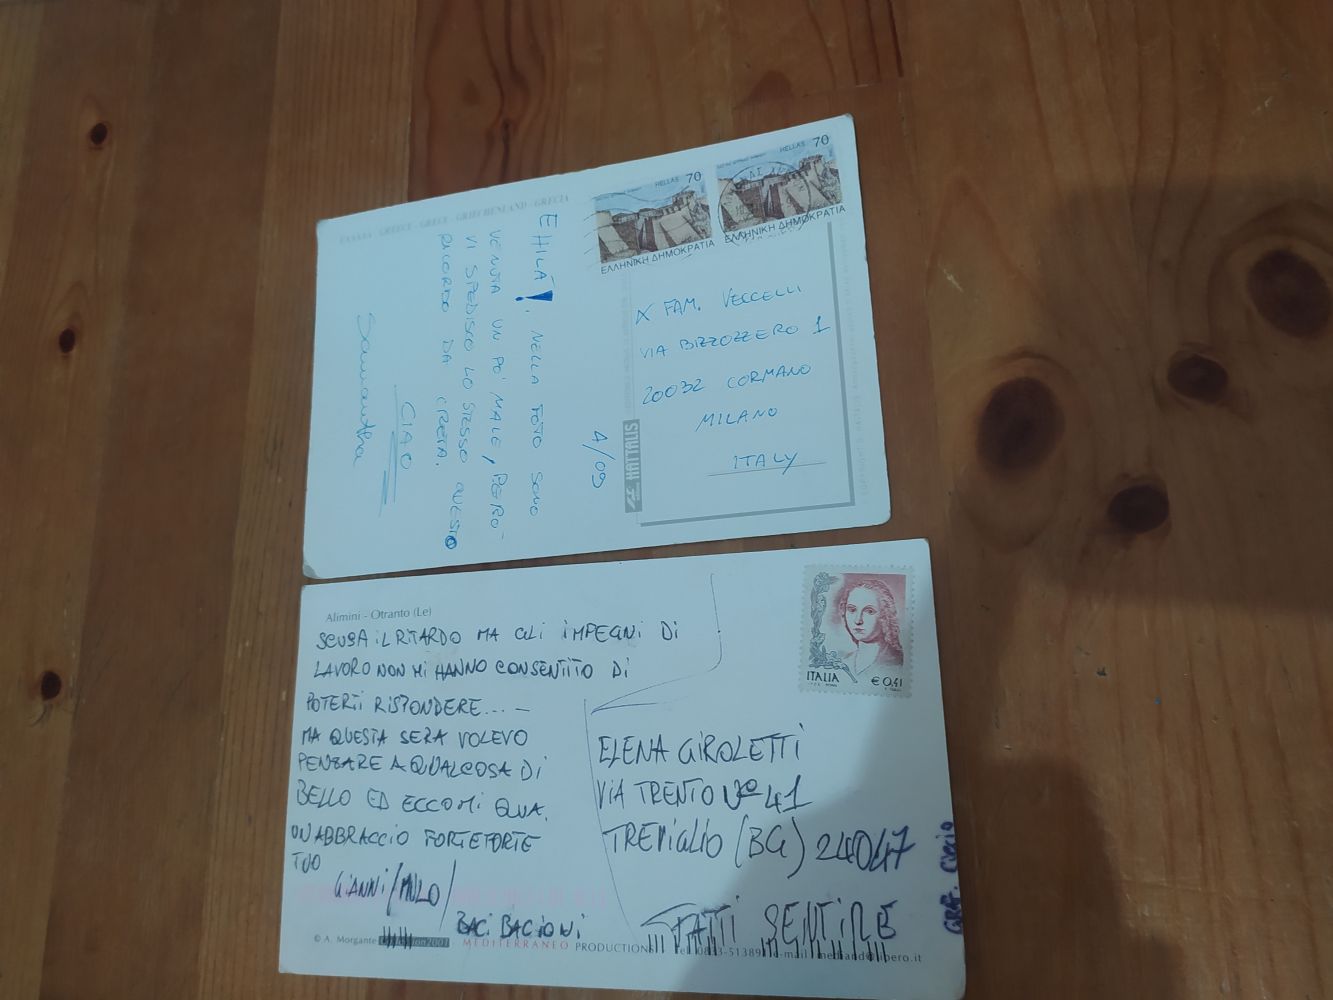 ΕΛΛΑΔΑ - GREECE - GRECE - GRIECHENLAND - GRECIA
HELLAS 70
ΕΛΛΗΝΙΚΗ ΔΗΜΟΚΡΑΤΙΑ
HELLAS 70
ΕΛΛΗΝΙΚΗ ΔΗΜΟΚΡΑΤΙΑ
EHILÀ!. NELLA FOTO SONO
VENUTA UN PO' MALE, PERO'
VI SPEDISCO LO STESSO QUESTO
RICORDO DA CRETA.
CIAO
Samantha
4/09
HAITALIS
X FAM. VECCELLI
VIA BIZZOZZERO 1
20032 CORMANO
MILANO
ITALY
Alimini - Otranto (Le)
SCUSA IL RITARDO MA GLI IMPEGNI DI
LAVORO NON MI HANNO CONSENTITO DI
POTERTI RISPONDERE....-
MA QUESTA SERA VOLEVO
PENSARE A QUALCOSA DI
BELLO ED ECCOMI QUA.
UN ABBRACCIO FORTE FORTE
TUO
GIANNI/
BACI BACIONI
ITALIA € 0,41
ELENA GIROLETTI
VIA TRENTO Nº 41
TREVIGLIO (BG) 24047
FATTI SENTIRE
© A. Morgante 2001 MEDITERRANEO PRODUCTION Tel. 0833-51389 e-mail mediand@libero.it